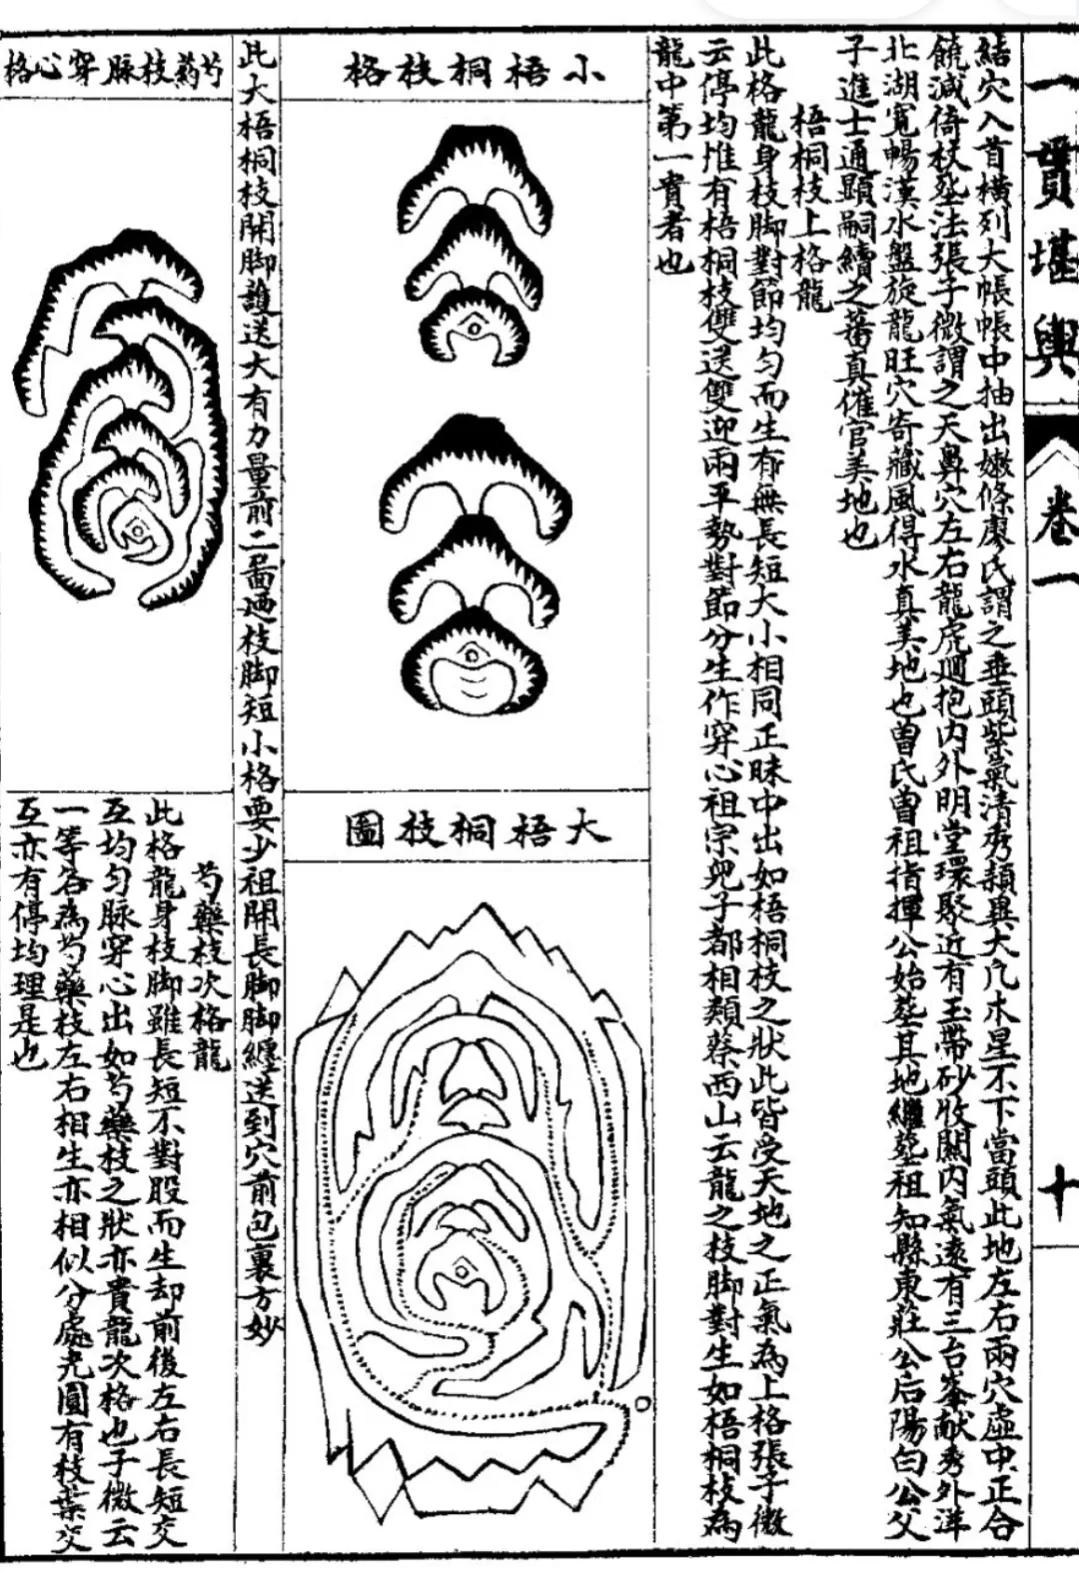 一貫堪輿
卷一
十
結穴入首橫列大帳帳中抽出嫩條廖氏謂之垂頭紫氣清秀頴異大凢木星不下當頭此地左右兩穴虛中正合
饒減倚杖塟法張子微謂之天鼻穴左右龍虎廻抱內外明堂環聚近有玉帶砂收關內氣遠有三台峯献秀外洋
北湖寛暢漢水盤旋龍旺穴竒藏風得水真美地也曾氏曾祖指揮公始塟其地繼塟祖知縣東莊公后陽白公父
子進士通顯嗣續之蕃真催官美地也
梧桐枝上格龍
此格龍身枝脚對節均匀而生有無長短大小相同正脉中出如梧桐枝之狀此皆受天地之正氣為上格張子微
云停均惟有梧桐枝雙送雙迎兩平勢對節分生作穿心祖宗兒子都相類蔡西山云龍之枝脚對生如梧桐枝為
龍中第一貴者也
小梧桐枝格
大梧桐枝圖
此大梧桐枝開脚護送大有力量前二啚廼枝脚短小格要少祖開長脚脚纏送到穴前包裏方妙
芍藥枝脉穿心格
芍藥枝次格龍
此格龍身枝脚雖長短不對股而生却前後左右長短交
互均匀脉穿心出如芍藥枝之狀亦貴龍次格也子微云
一等名為芍藥枝左右相生亦相似分處尖圓有枝葉交
互亦有停均理是也